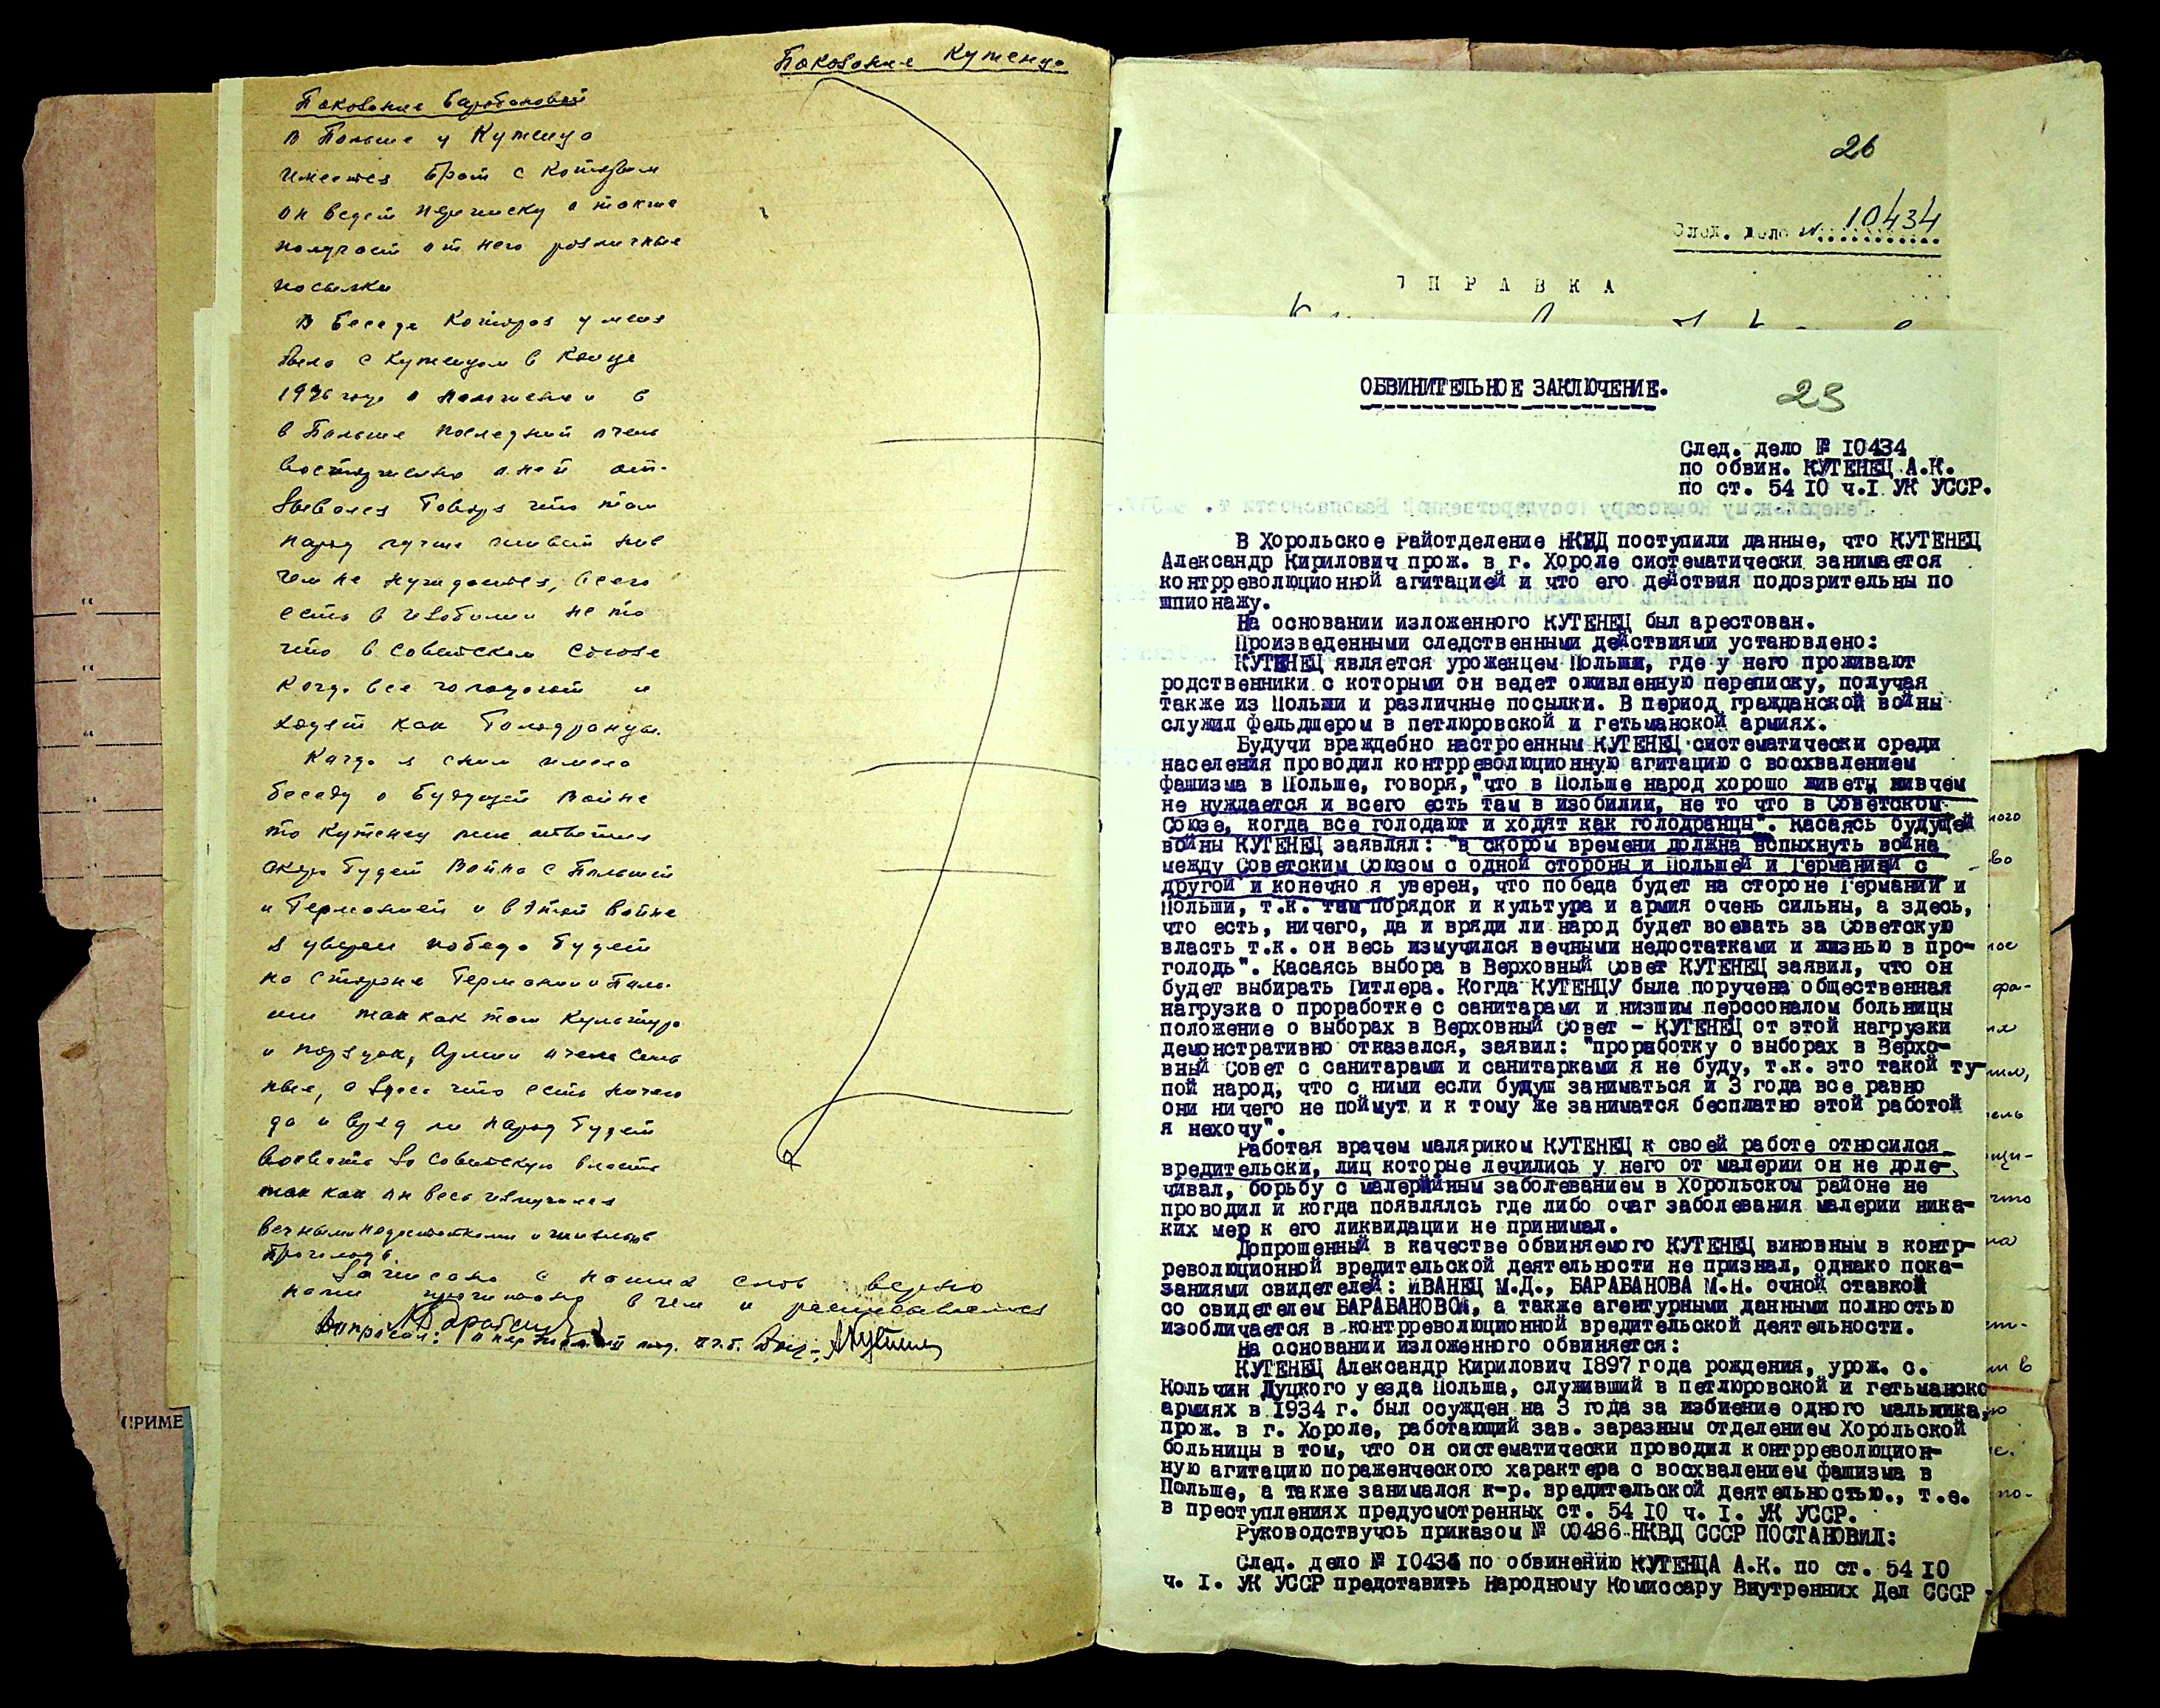 Показание Кутенца
Показание Барабановой
В Польше у Кутенца
имеется брат с которым
он ведет переписку а также
получает от него различные
посылки
В беседе которая у меня
была с Кутенцом в конце
1936 года о положении в
в Польше последний очень
восторженно о ней от-
зывался говоря что там
народ лучше живет ни в
чем не нуждается, всего
есть в изобилии не то
что в Советском Союзе
когда все голодают и
ходят как голодранцы.
Когда я с ним имела
беседу о будущей войне
то Кутенец мне ответил
скоро будет война с Польшей
и Германией и в этой войне
я уверен победа будет
на стороне Германии и Поль-
ши так как там культура
и порядок, Армии очень силь
ные, а здесь что есть ничего
да и вряд ли народ будет
воевать за Советскую власть
так как он весь измучился
вечными недостатками и жизнью
впроголодь.
Записано с наших слов верно
нами прочитано в чем и расписываемся
Допросил:
ПРИМЕ
26
След. дело № 10434
СПРАВКА
ОБВИНИТЕЛЬНОЕ ЗАКЛЮЧЕНИЕ.
23
След. дело № 10434
по обвин. КУТЕНЕЦ А.К.
по ст. 54 10 ч.I УК УССР.
В Хорольское Райотделение НКВД поступили данные, что КУТЕНЕЦ
Александр Кирилович прож. в г. Хороле систематически занимается
контрреволюционной агитацией и что его действия подозрительны по
шпионажу.
На основании изложенного КУТЕНЕЦ был арестован.
Произведенными следственными действиями установлено:
КУТЕНЕЦ является уроженцем Польши, где у него проживают
родственники с которыми он ведет оживленную переписку, получая
также из Польши и различные посылки. В период гражданской войны
служил фельдшером в петлюровской и гетьманской армиях.
Будучи враждебно настроенным КУТЕНЕЦ систематически среди
населения проводил контрреволюционную агитацию с восхвалением
фашизма в Польше, говоря, "что в Польше народ хорошо живет, нивчем
не нуждается и всего есть там в изобилии, не то что в Советском
Союзе, когда все голодают и ходят как голодранцы". Касаясь будущей
войны КУТЕНЕЦ заявлял: "в скором времени должна вспыхнуть война
между Советским Союзом с одной стороны и Польшей и Германией с
другой и конечно я уверен, что победа будет на стороне Германии и
Польши, т.к. там порядок и культура и армия очень сильны, а здесь,
что есть, ничего, да и вряди ли народ будет воевать за Советскую
власть т.к. он весь измучился вечными недостатками и жизнью в про-
голодь". Касаясь выбора в Верховный Совет КУТЕНЕЦ заявил, что он
будет выбирать Гитлера. Когда КУТЕНЦУ была поручена общественная
нагрузка о проработке с санитарами и низшим перссоналом больницы
положение о выборах в Верховный Совет - КУТЕНЕЦ от этой нагрузки
демонстративно отказался, заявил: "проработку о выборах в Верхо-
вный Совет с санитарами и санитарками я не буду, т.к. это такой ту-
пой народ, что с ними если будуш заниматься и 3 года все равно
они ничего не поймут и к тому же заниматся бесплатно этой работой
я нехочу".
Работая врачем маляриком КУТЕНЕЦ к своей работе относился
вредительски, лиц которые лечились у него от малерии он не доле-
чивал, борьбу с малерийным заболеванием в Хорольском районе не
проводил и когда появлялсь где либо очаг заболевания малерии ника-
ких мер к его ликвидации не принимал.
Допрошенный в качестве обвиняемого КУТЕНЕЦ виновным в контр-
революционной вредительской деятельности не признал, однако пока-
заниями свидетелей: ИВАНЕЦ М.Д., БАРАБАНОВА М.Н. очной ставкой
со свидетелем БАРАБАНОВОЙ, а также агентурными данными полностью
изобличается в контрреволюционной вредительской деятельности.
На основании изложенного обвиняется:
КУТЕНЕЦ Александр Кирилович 1897 года рождения, урож. с.
Кольчин Луцкого уезда Польша, служивший в петлюровской и гетьманско
армиях в 1934 г. был осужден на 3 года за избиение одного мальчика,
прож. в г. Хороле, работающий зав. заразным отделением Хорольской
больницы в том, что он систематически проводил контрреволюцион-
ную агитацию пораженческого характера с восхвалением фашизма в
Польше, а также занимался к-р. вредительской деятельностью., т.е.
в преступлениях предусмотренных ст. 54 10 ч. I. УК УССР.
Руководствучсь приказом № 00486 НКВД СССР ПОСТАНОВИЛ:
След. дело № 10434 по обвинению КУТЕНЦА А.К. по ст. 54 10
ч. I. УК УССР представить Народному Комиссару Внутренних Дел СССР